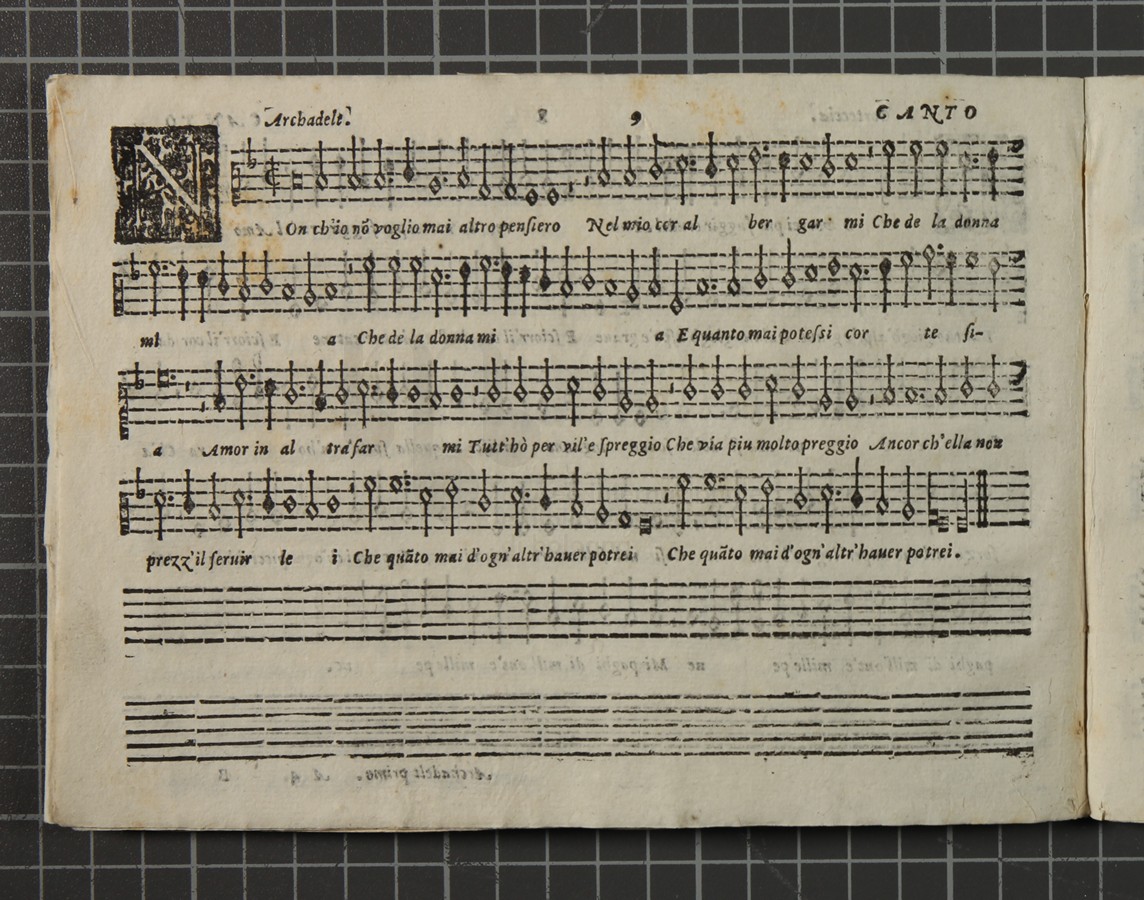 Archadelt. 9 CANTO
NOn ch'io nõ voglio mai altro pensiero Nel mio cor al ber gar mi Che de la donna
mi a Che de la donna mi a E quanto mai potessi cor te si-
a Amor in al tra far mi Tutt'hò per vil'e spreggio Che via piu molto preggio Ancor ch'ella non
prezz'il seruir le i Che quãto mai d'ogn'altr'hauer potrei Che quãto mai d'ogn'altr'hauer potrei.